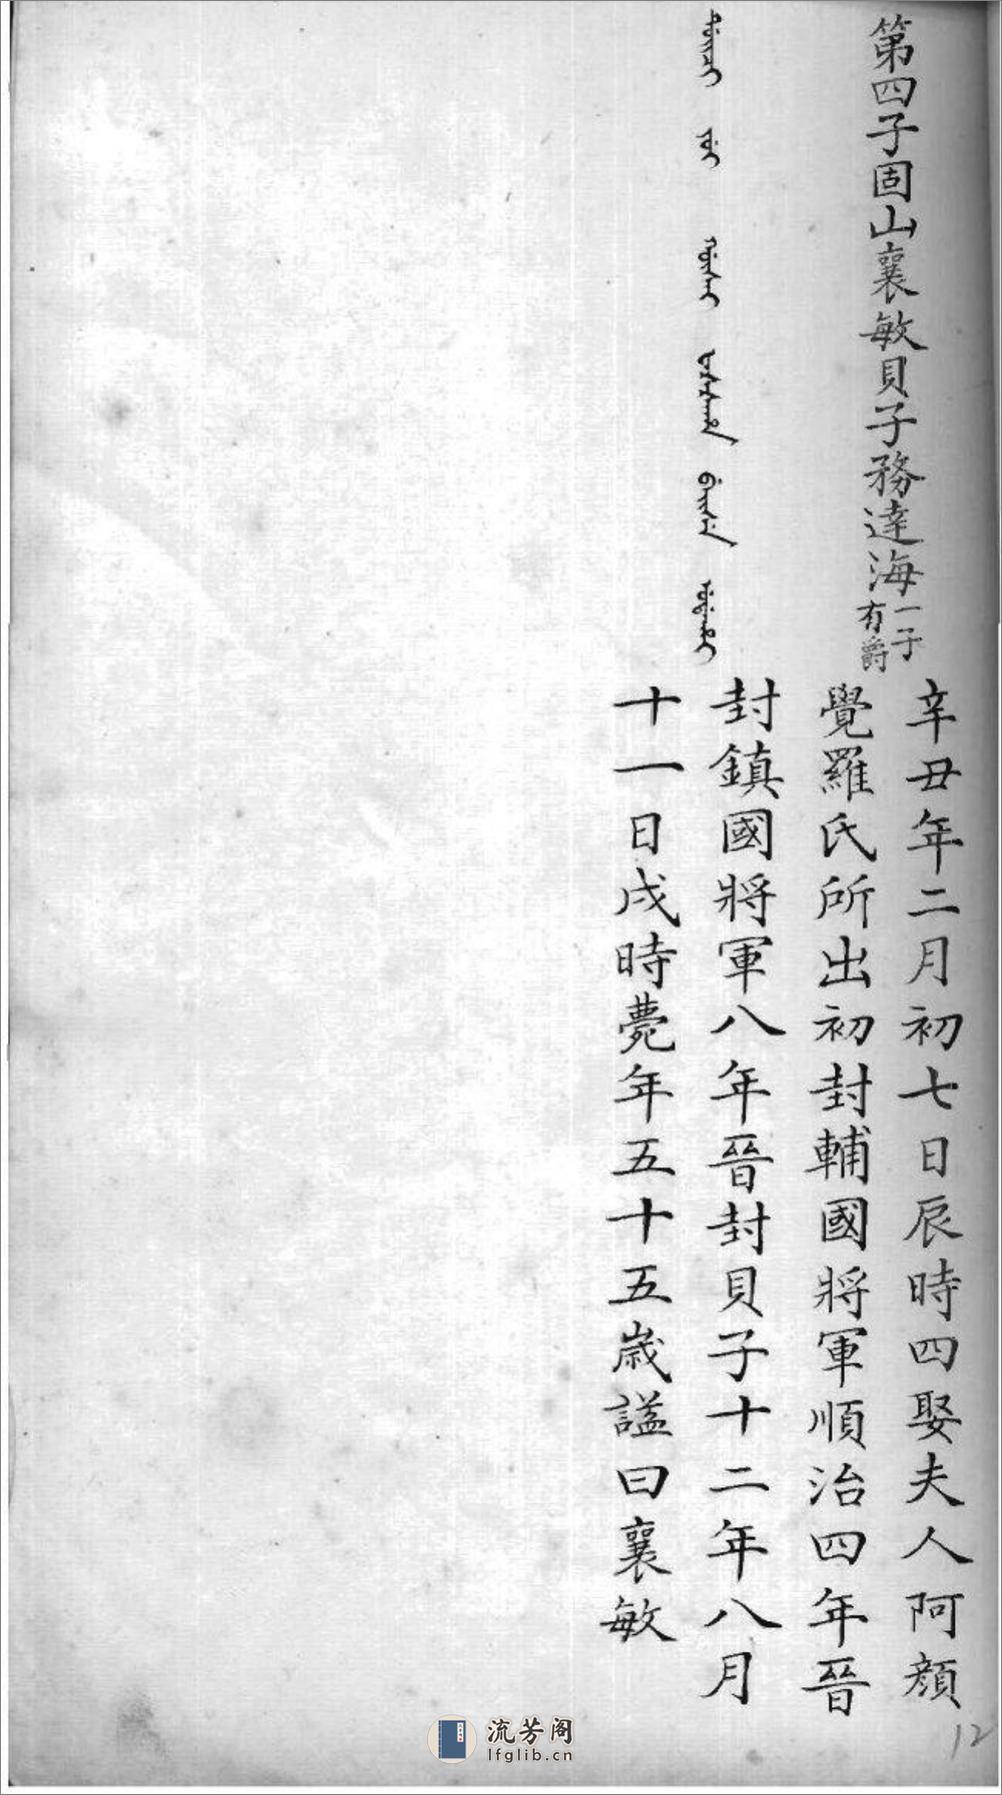 第四子固山襄敏貝子務達海
一子
有爵
辛丑年二月初七日辰時四娶夫人阿顔
覺羅氏所出初封輔國將軍順治四年晉
封鎮國將軍八年晉封貝子十二年八月
十一日戌時薨年五十五歲諡曰襄敏
12
流芳阁
lfglib.cn